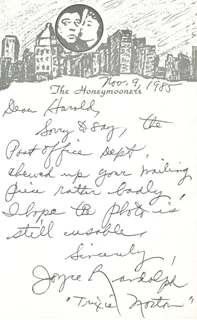 The Honeymooners
Nov. 9, 1985
Dear Harold,
Sorry to say, the
Post Office Dept.
chewed up your mailing
piece rather badly,
I hope the photo is
still usable,
Sincerely,
Joyce Randolph
"Trixie Norton"